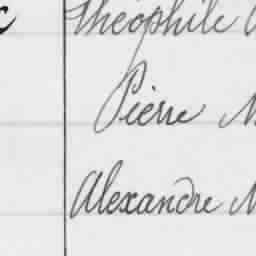 Théophile
Pierre
Alexandre